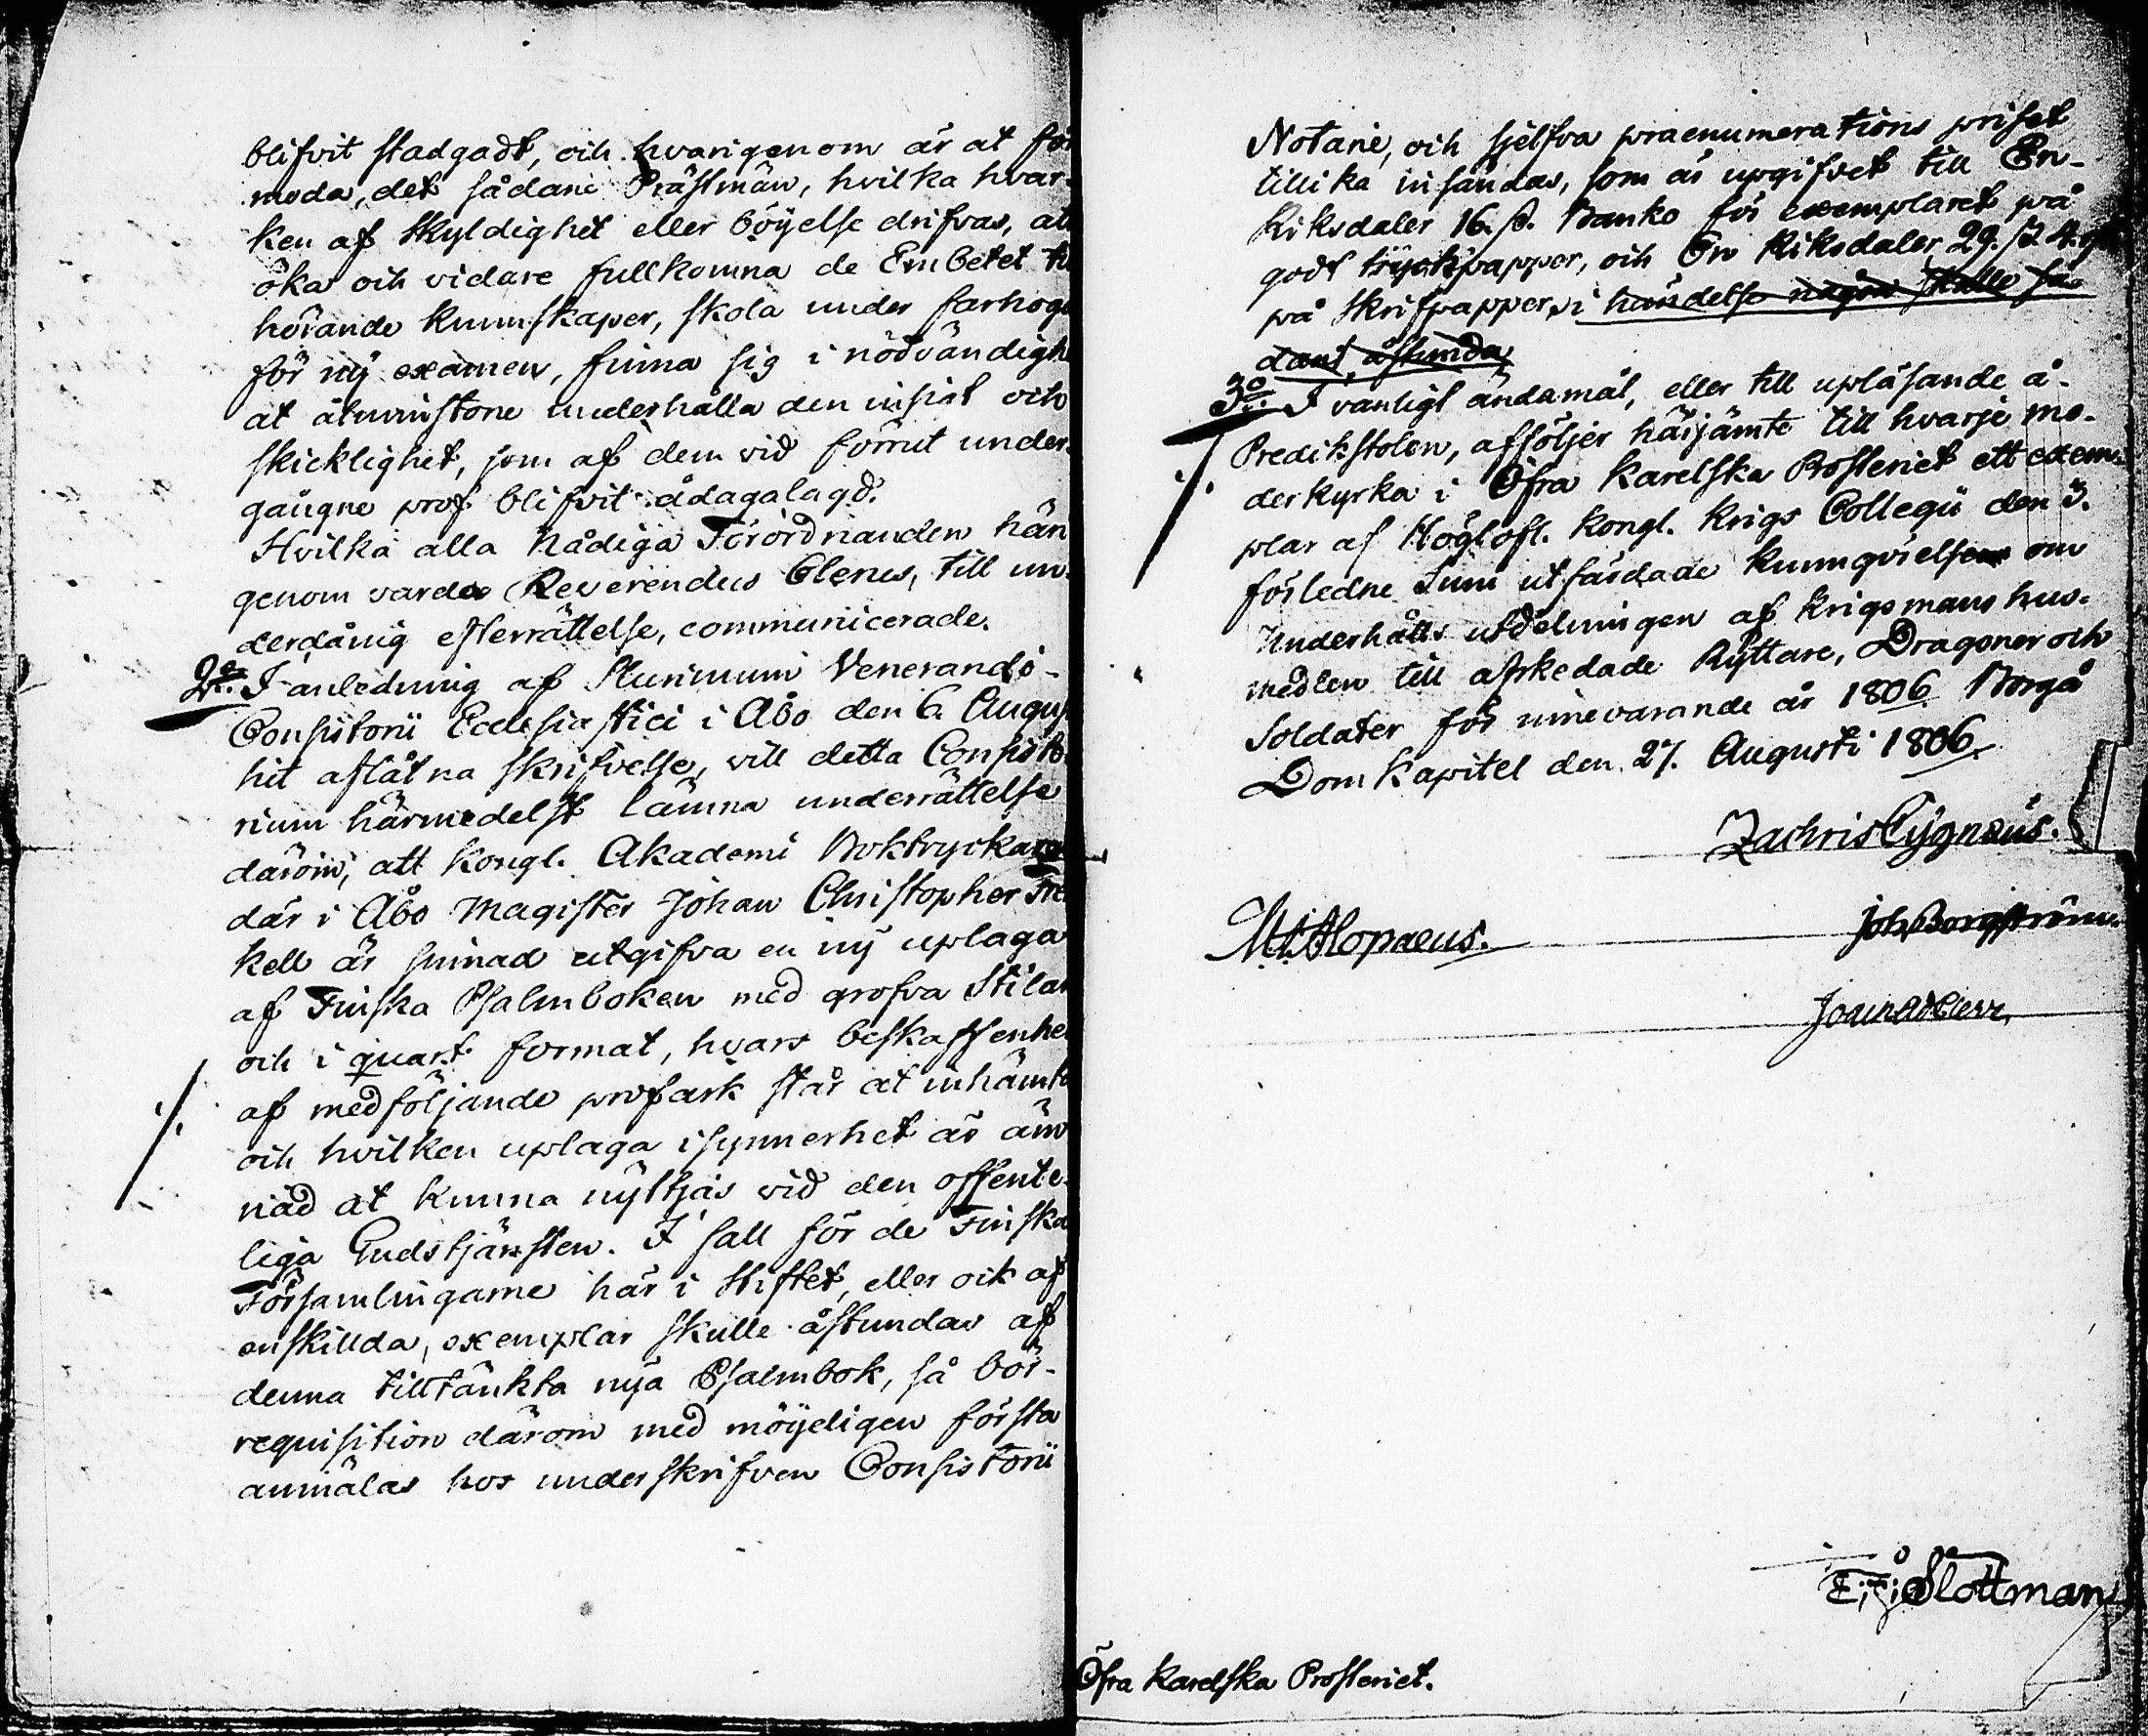 blifvit stadgadt, och hvarigenom är at för
moda, det sådane Prästmän, hvilka hvar-
ken af skyldighet eller böyelse drifvas, att
öka och vidare fullkomna de Embetet til
hörande kunskaper, skola under farhoga
för ny examen, finna sig i nödvändighe
at åtminstone underhålla den insigt och
skicklighet, som af dem vid förrut under-
gångne prof blifvit ådagalagd.
Hvilka alla Nådiga Förordnanden här
genom varda Reverendus Clerus, till un-
derdånig efterrättelse, communicerade.
2o. I anledning af Plurimum Venerandi
Consistorii Ecclesiastici i Åbo den 6. Augus
hit aflåtna skrifvelse, vill detta Consisto
rium härmedelst lämna underrättelse
därom, att Kongl. Akademi Boktryckaren
där i Åbo Magister Johan Christopher Fren
kell är sinnad utgifva en ny uplaga
af Finska Psalmboken med grofva Stilar
och i quart format, hvars beskaffenhe
af medföljande profark står at inhämta
och hvilken uplaga isynnerhet är äm
nad at kunna nyttjas vid den offente-
liga Gudstjänsten. I fall för de Finska
Församlingarne här i Stiftet, eller ock af
enskillda, exemplar skulle åstundas af
denna tilltänkta nya Psalmbok, så bör-
requisition därom med möyeligen första
anmälas hos underskrifven Consistorii
Notarie, och sjelfva praenumerations priset
tillika insändas, som är upgifvet till En-
Riksdaler 16. ß. Banko för exemplaret på
godt tryckpapper, och En Riksdaler 29. ß 4. r
på Skrifpapper, i händelse någon skulle så-
dant åstunda
3o. I vanligt ändamål, eller till upläsande å-
Predikstolen, afföljer härjämte till hvarje mo-
derkyrka i Öfra Karelska Prosteriet ett exem-
plar af Höglofl. Kongl. Krigs Collegii den 3.
förledne Junii utfärdade kunngörelse om
Underhålls utdelningen af Krigsmans hus-
medlen till afskedade Ryttare, Dragoner och
Soldater för innevarande år 1806. Borgå
DomKapitel den 27. Augusti 1806.
Zachris Cygnæus.
M. Alopaeus.
Joh. Borgström.
Slottman
Öfra Karelska Prosteriet.